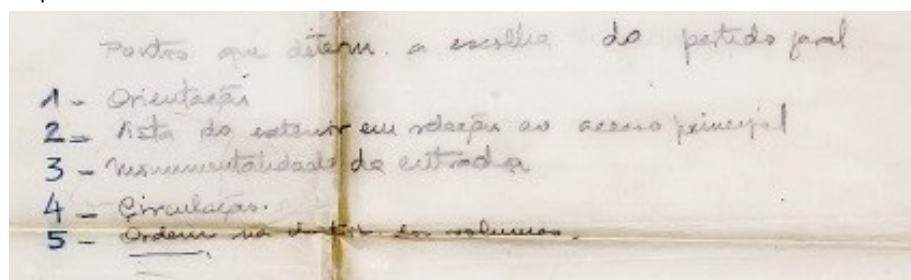 Pontos que determ. a escolha do partido geral
1 - Orientação
2 - Vista do exterior em relação ao acesso principal
3 - Monumentalidade da entrada
4 - Circulação.
5 - Ordem na distr. dos volumes.